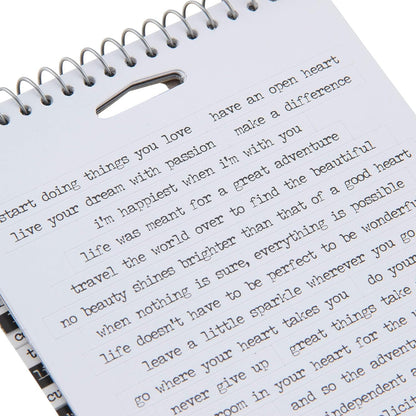 start doing things you love have an open heart
live your dream with passion make a difference
i'm happiest when i'm with you
life was meant for a great adventure
travel the world over to find the beautiful
no beauty shines brighter than that of a good heart
when nothing is sure, everything is possible
life doesn't have to be perfect to be wonderful
leave a little sparkle wherever you go
go where your heart takes you do your
never give up great things take
room in your heart for the
and so the adventure
independent